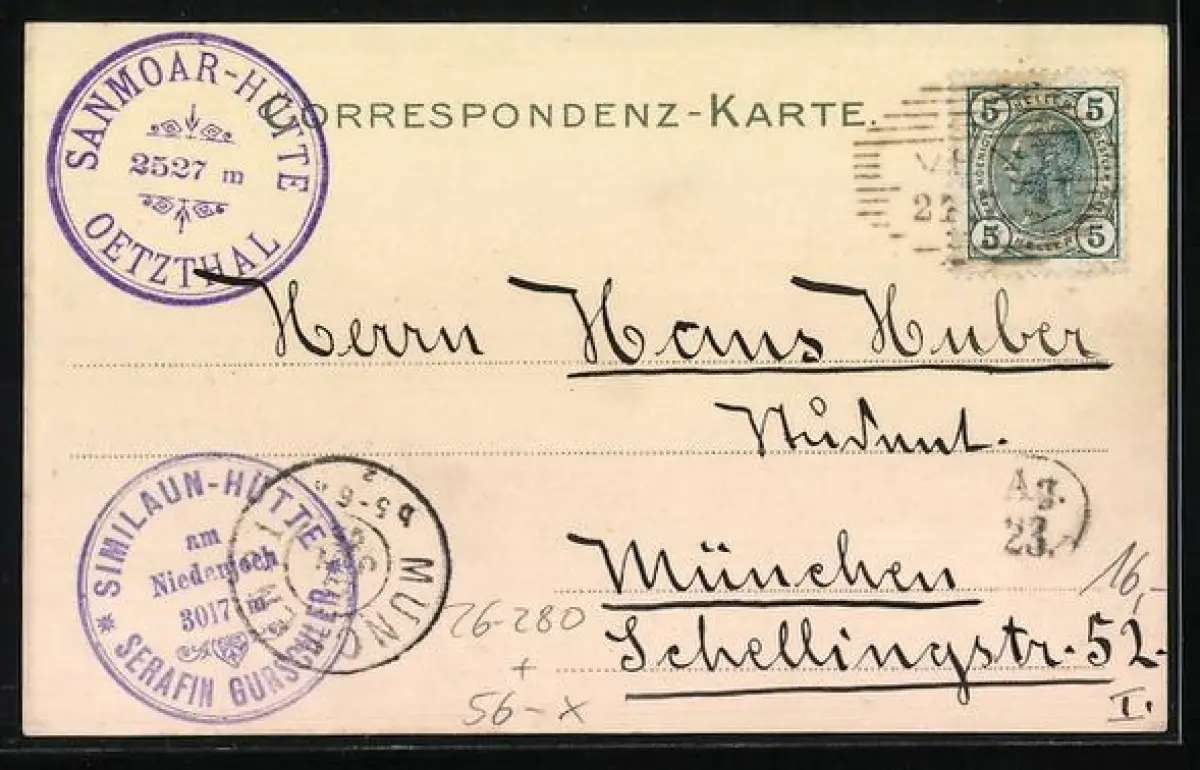 SANMOAR-HÜTTE
2527 m
OETZTHAL
CORRESPONDENZ-KARTE.
5 5
5 5
Herrn Hans Huber
Student.
SIMILAUN-HÜTTE
am
Niederjoch
3017 m
SERAFIN GURSCHLER
MÜNC
5-6
Ag.
23.
München
16,-
26-280
Schellingstr. 52.
+
56-X
I.